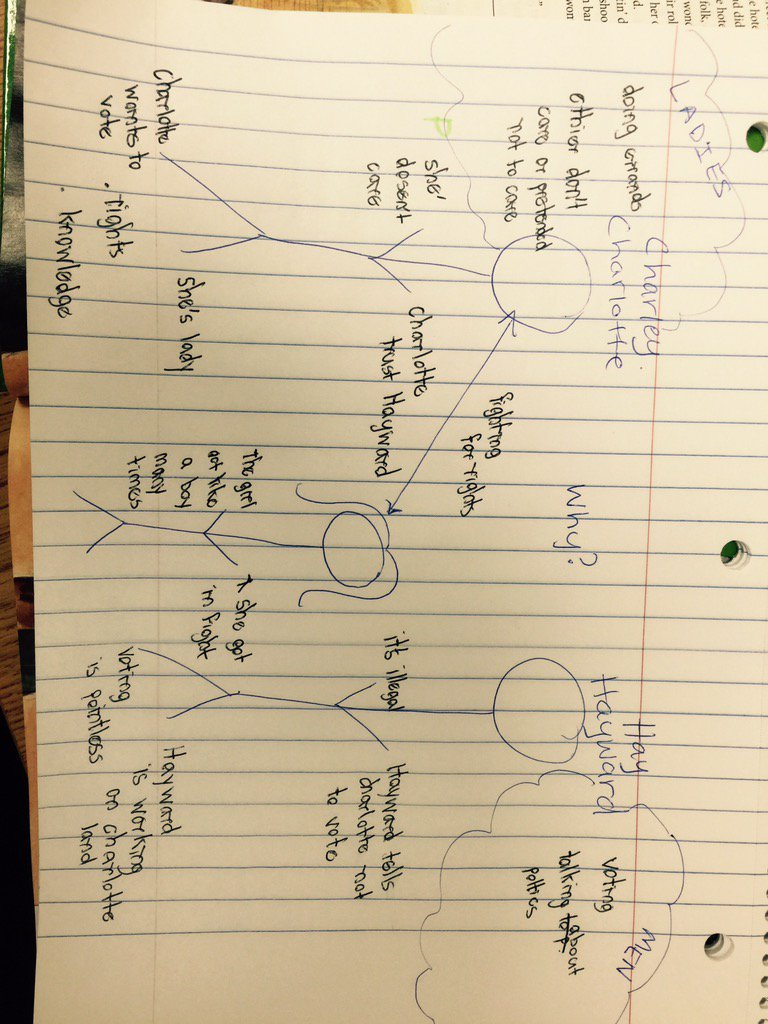 LADIES
doing errands
ethier don't
care or pretended
not to care
Charley
Charlotte
she'
dosent
care
Charlotte
wants to
vote
. rights
. knowledge
she's lady
Charlotte
trust Hayward
fighting
for rights
Why?
the girl
got like
a boy
many
times
she got
in fight
Hay
Hayward
it's illegal
Hayward tells
charlotte not
to vote
voting
is pointless
Hayward
is working
on charlotte
land
MEN
voting
talking about
poltics